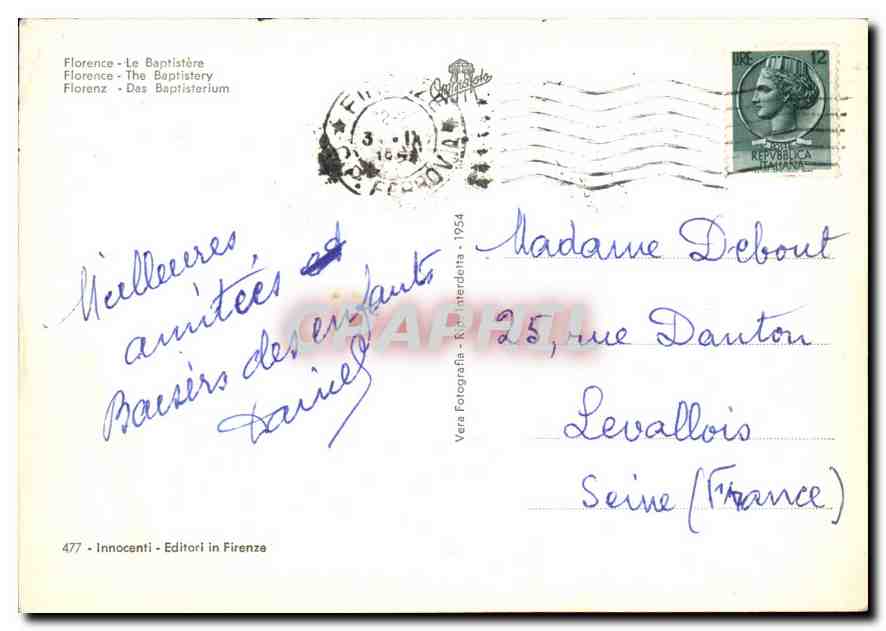 Florence - Le Baptistère
Florence - The Baptistery
Florenz - Das Baptisterium
FERROVIA
LIRE 12
POSTE
REPVBBLICA
ITALIANA
Meilleures
amitiés et
Baisers des enfants
Daniel
Vera Fotografia - Rip. Interdetta - 1954
Madame Debout
25, rue Danton
Levallois
Seine (France)
477 - Innocenti - Editori in Firenze